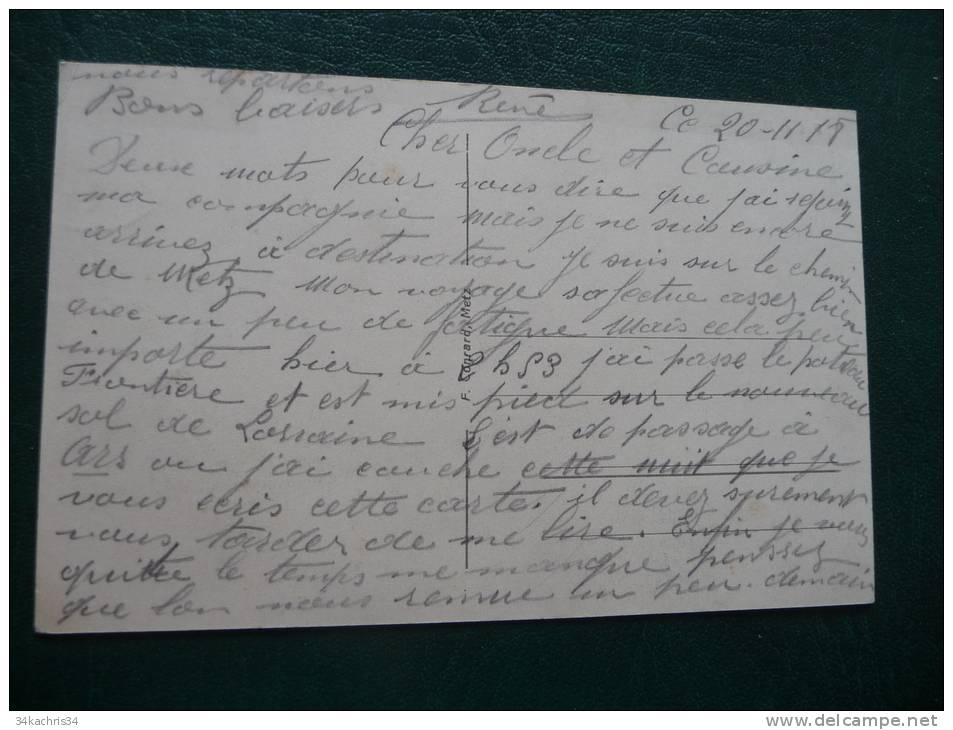 nous repartons
Bons baisers René
Ce 20-11-18
Cher Oncle et Cousine
Deux mots pour vous dire que j'ai rejoins
ma compagnie mais je ne suis encore
arrivez à destination je suis sur le chemin
de Metz Mon voyage safectue assez bien
avec un peu de fatigue Mais cela peu
importe hier à 2h53 j'ai passe le poteau
Frontière et est mis pied sur le nouveau
sol de Lorraine C'est de passage à
Ars ou j'ai couche cette nuit que je
vous ecris cette carte. il devez surement
vous tarder de me lire. Enfin je vous
quitte le temps me manque pensez
que lon nous remue un peu. demain
F. Conrard, Metz
34kachris34
www.delcampe.net